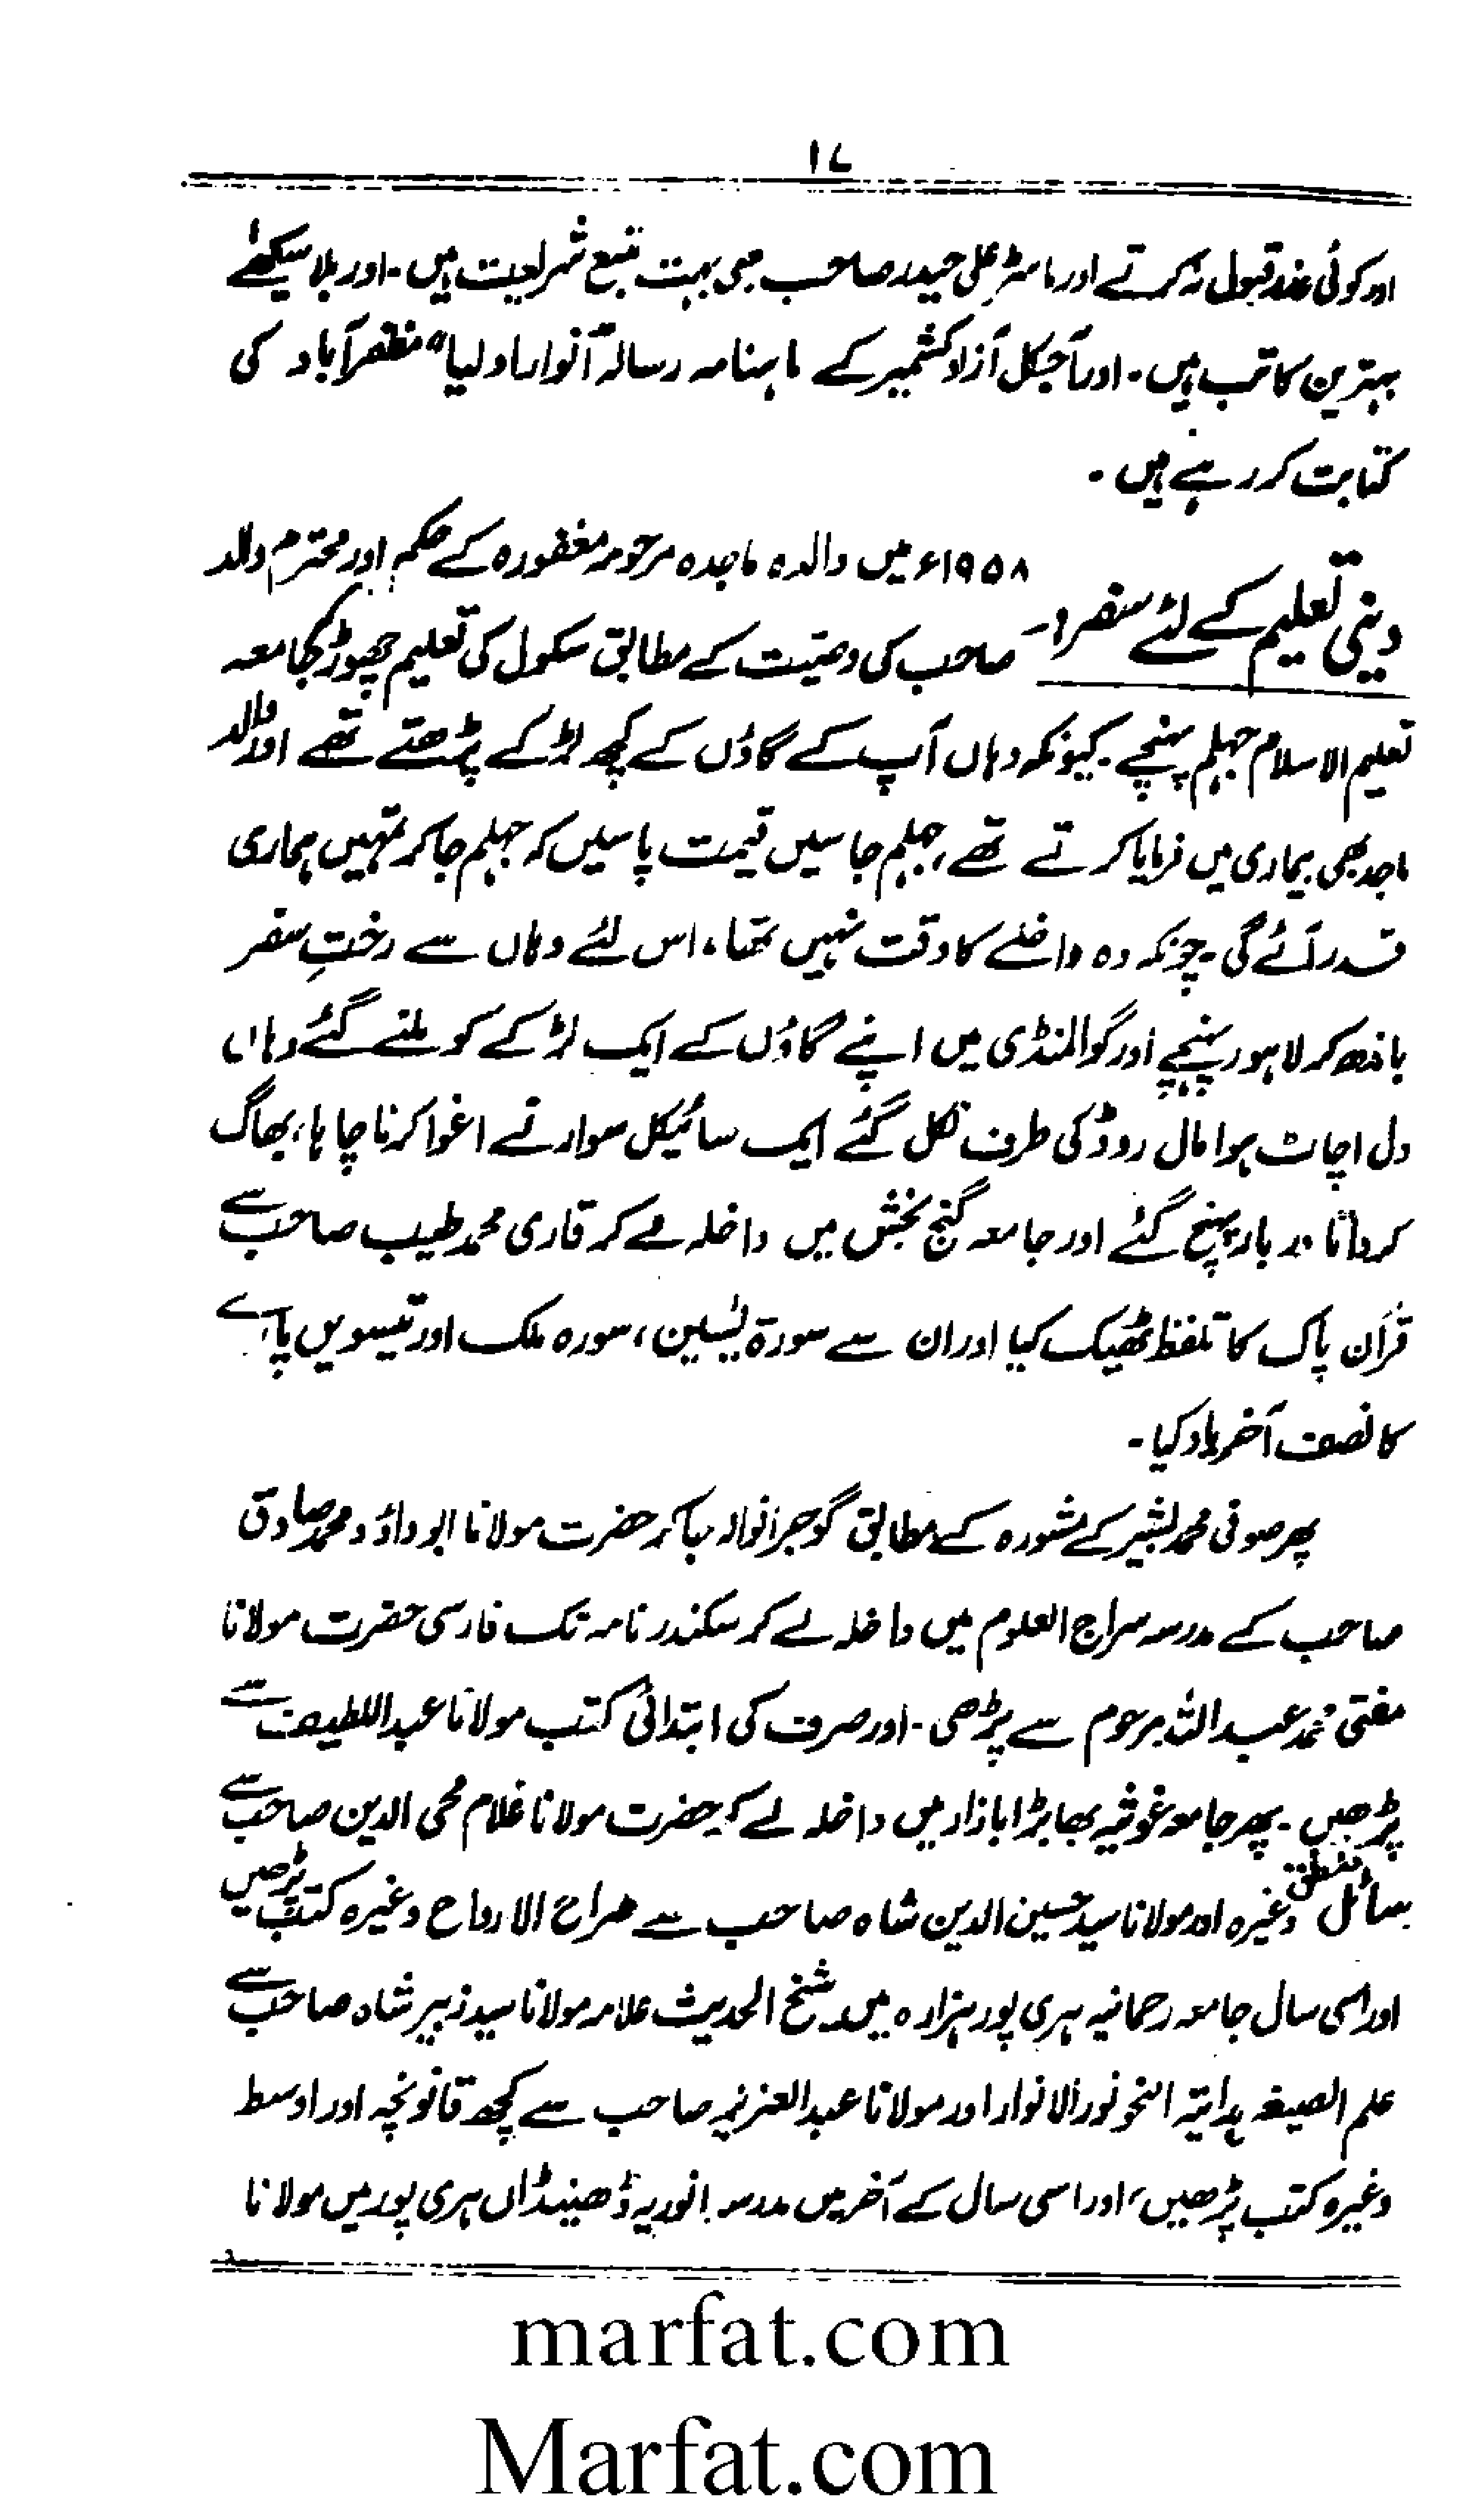 ۱۷
اور کوئی عذر قبول نہ کرتے اور ماسٹر علی حیدر صاحب بھی بہت متبع شریعت ہیں۔ اور بلا سیکھے
بہترین کاتب ہیں۔ اور آجکل آزاد کشمیر کے ماہنامہ رسالہ "انوار اولیاء" مظفر آباد کی
کتابت کر رہے ہیں۔
دینی تعلیم کے لئے سفر:۔ ۱۹۵۸ء میں والدہ ماجدہ مرحومہ مغفورہ کے حکم اور محترم والد
صاحب کی وصیت کے مطابق سکول کی تعلیم چھوڑ کر جامعہ
تعلیم الاسلام جہلم پہنچے۔ کیونکہ وہاں آپ کے گاؤں کے کچھ لڑکے پڑھتے تھے اور والد
ماجد بھی بیماری میں فرمایا کرتے تھے، جہلم جا سیں قیمت پا سیں کہ جہلم جا کر تمہیں ہماری
قدر آئے گی۔ چونکہ وہ داخلے کا وقت نہیں تھا، اس لئے وہاں سے رختِ سفر
باندھ کر لاہور پہنچے اور گوالمنڈی میں اپنے گاؤں کے ایک لڑکے کو ملنے گئے وہاں
دل اچاٹ ہوا مال روڈ کی طرف نکل گئے ایک سائیکل سوار نے اغوا کرنا چاہا، بھاگ
کر داتا دربار پہنچ گئے اور جامعہ گنج بخش میں داخلہ لے کر قاری محمد طیب صاحب سے
قرآن پاک کا تلفظ ٹھیک کیا اور ان سے سورۃ یٰسین، سورہ ملک اور تیسویں پارے
کا نصف آخر یاد کیا۔
پھر صوفی محمد بشیر کے مشورہ کے مطابق گوجرانوالہ جا کر حضرت مولانا ابو داؤد محمد صادق
صاحب کے مدرسہ سراج العلوم میں داخلہ لے کر سکندر نامہ تک فارسی حضرت مولانا
مفتی محمد عبداللہ مرحوم سے پڑھی۔ اور صرف کی ابتدائی کتب مولانا عبداللطیف سے
پڑھیں۔ پھر جامعہ غوثیہ بھابڑا بازار میں داخلہ لے کر حضرت مولانا غلام محی الدین صاحب سے
رسائل منطق وغیرہ اور مولانا سید حسین الدین شاہ صاحب سے مراح الارواح وغیرہ کتب پڑھیں
اور اسی سال جامعہ رحمانیہ ہری پور ہزارہ میں شیخ الحدیث علامہ مولانا سید زبیر شاہ صاحب سے
علم الصیغہ ہدایۃ النحو نور الانوار اور مولانا عبدالعزیز صاحب سے کچھ قانونچہ اور اوسط
وغیرہ کتب پڑھیں، اور اسی سال کے آخر میں مدرسہ انوریہ ڈھینڈاں ہری پور میں مولانا
marfat.com
Marfat.com